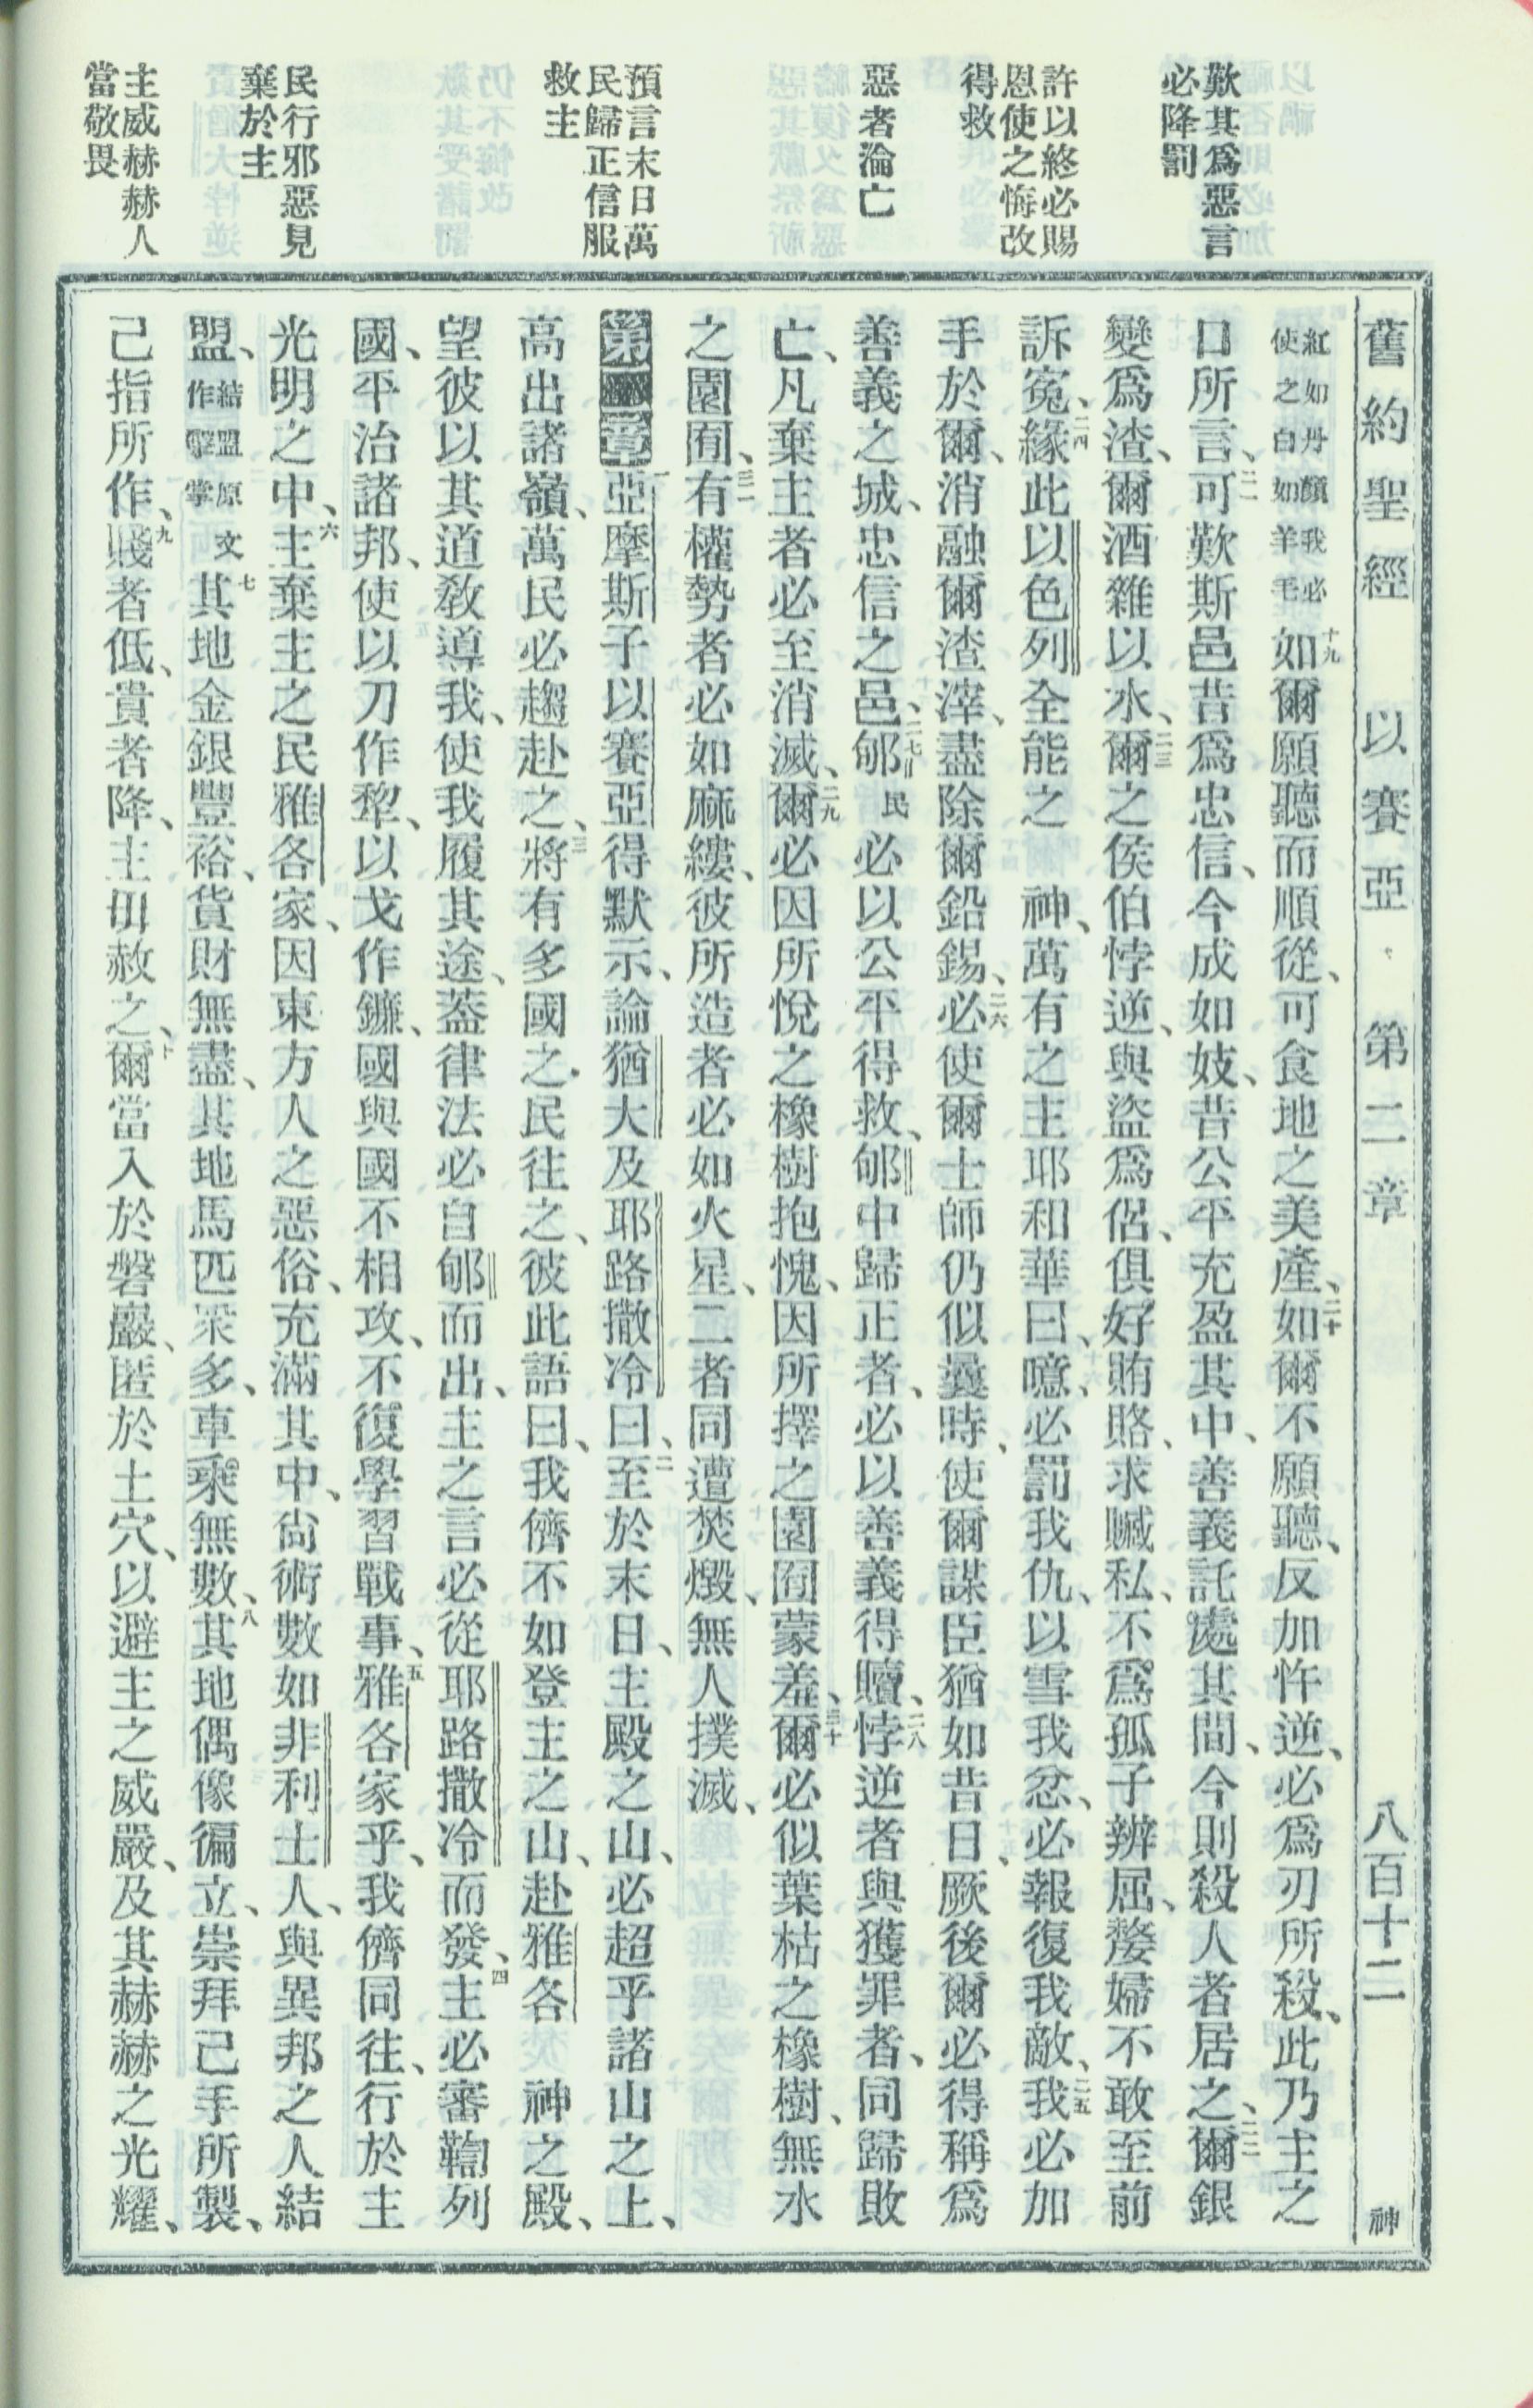 舊約聖經 以賽亞 第二章 八百十二 神
歎其爲惡言
必降罰
許以終必賜
恩使之悔改
得救
惡者淪亡
預言末日萬
民歸正信服
救主
民行邪惡見
棄於主
主威赫赫人
當敬畏
紅如丹顏我必使之白如羊毛十九如爾願聽而順從、可食地之美產、二十如爾不願聽、反加忤逆、必爲刃所殺、此乃主之
口所言、二一可歎斯邑昔爲忠信、今成如妓、昔公平充盈其中、善義託處其間、今則殺人者居之、二二爾銀
變爲渣、爾酒雜以水、二三爾之侯伯悖逆、與盜爲侶、俱好賄賂、求贓私、不爲孤子辨屈、嫠婦不敢至前
訴寃、二四緣此以色列全能之 神、萬有之主耶和華曰、噫、必罰我仇、以雪我忿、必報復我敵、二五我必加
手於爾、消融爾渣滓、盡除爾鉛錫、二六必使爾士師仍似曩時、使爾謀臣猶如昔日、厥後爾必得稱爲
善義之城、忠信之邑、二七郇民必以公平得救、郇中歸正者、必以善義得贖、二八悖逆者與獲罪者、同歸敗
亡、凡棄主者必至消滅、二九爾必因所悅之橡樹抱愧、因所擇之園囿蒙羞、三十爾必似葉枯之橡樹、無水
之園囿、三一有權勢者必如麻縷、彼所造者必如火星、二者同遭焚燬、無人撲滅、
第二章一亞摩斯子以賽亞得默示、論猶大及耶路撒冷曰、二至於末日、主殿之山、必超乎諸山之上、
高出諸嶺、萬民必趨赴之、三將有多國之民往之、彼此語曰、我儕不如登主之山、赴雅各 神之殿、
望彼以其道敎導我、使我履其途、蓋律法必自郇而出、主之言必從耶路撒冷而發、四主必審鞫列
國、平治諸邦、使以刀作犂、以戈作鐮、國與國不相攻、不復學習戰事、五雅各家乎、我儕同往、行於主
光明之中、六主棄主之民雅各家、因東方人之惡俗、充滿其中、尙術數如非利士人、與異邦之人結
盟、結盟原文作擊掌七其地金銀豐裕、貨財無盡、其地馬匹眾多、車乘無數、八其地偶像徧立、崇拜己手所製、
己指所作、九賤者低、貴者降、主毋赦之、十爾當入於磐巖、匿於土穴、以避主之威嚴、及其赫赫之光耀、